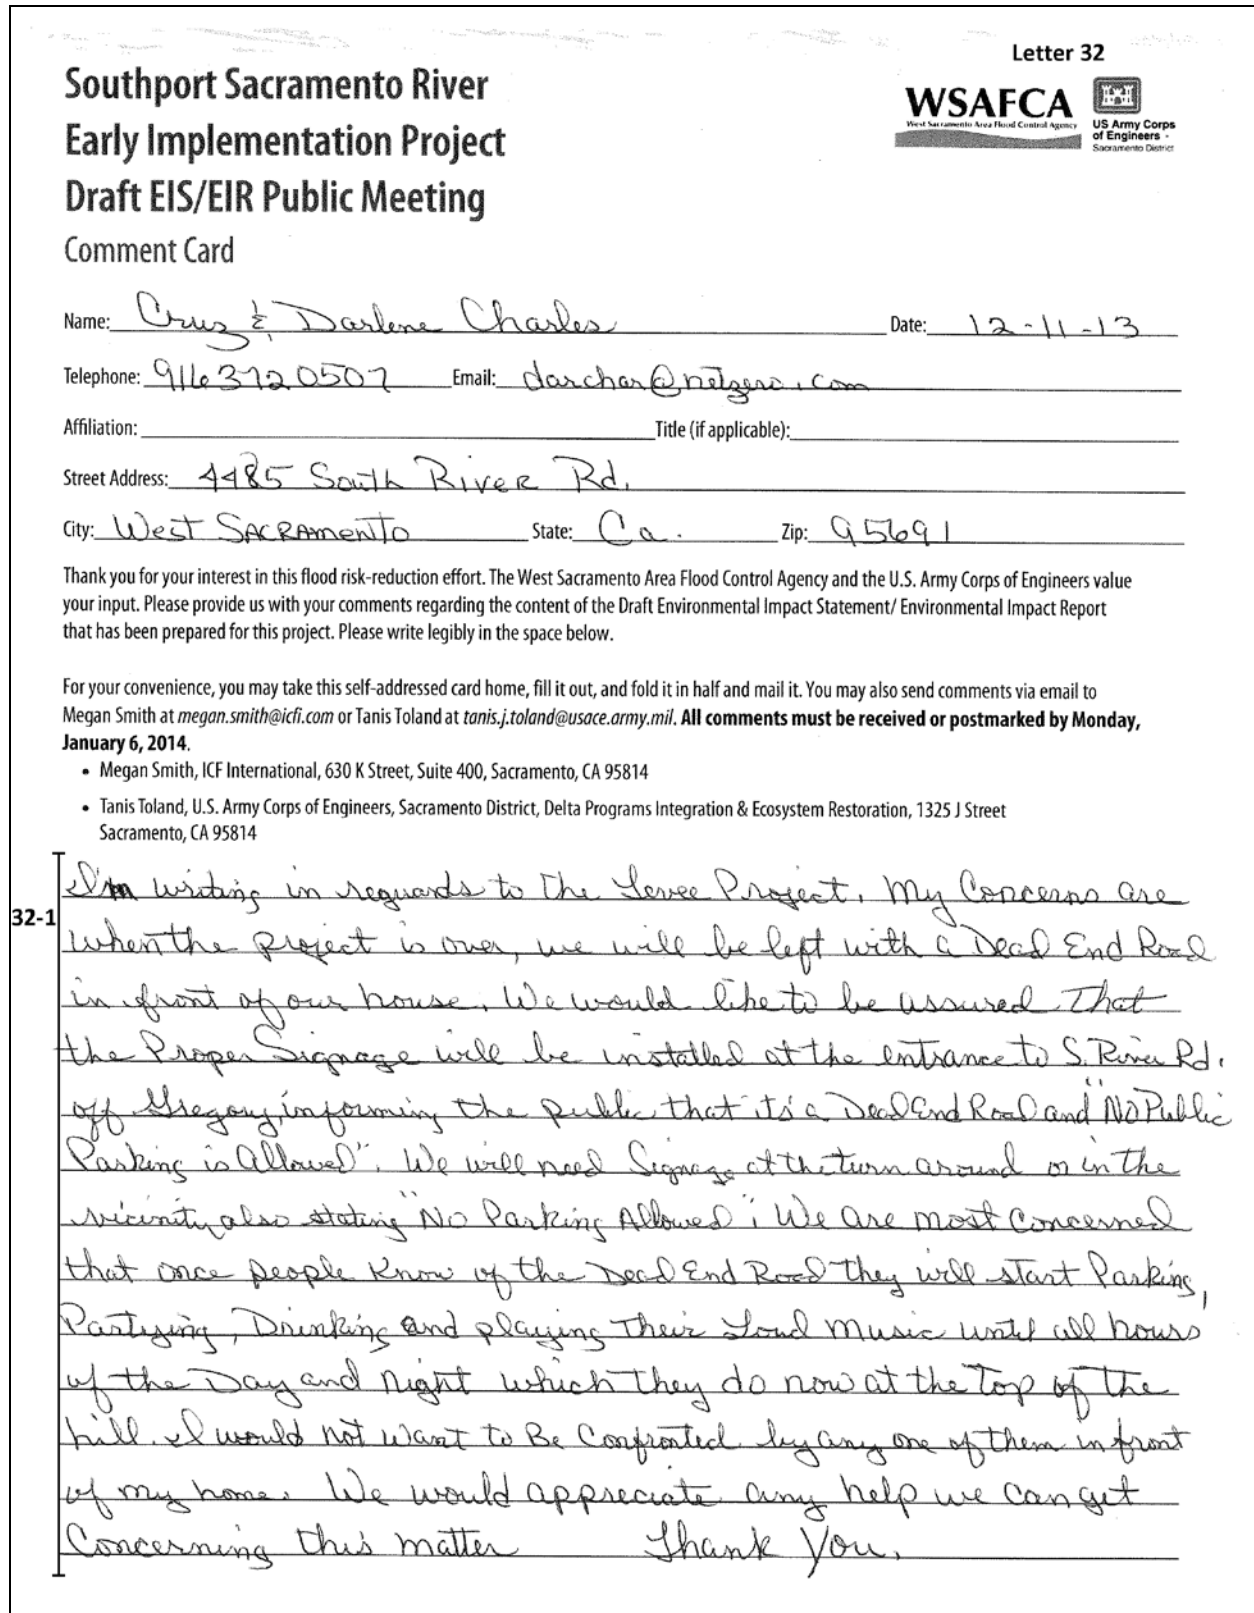 Letter 32
Southport Sacramento River
Early Implementation Project
Draft EIS/EIR Public Meeting
Comment Card
WSAFCA
West Sacramento Area Flood Control Agency
US Army Corps
of Engineers
Sacramento District
Name: Cruz & Darlene Charles Date: 12-11-13
Telephone: 9163720507 Email: darchar@netzero.com
Affiliation: Title (if applicable):
Street Address: 4485 South River Rd.
City: West Sacramento State: Ca. Zip: 95691
Thank you for your interest in this flood risk-reduction effort. The West Sacramento Area Flood Control Agency and the U.S. Army Corps of Engineers value
your input. Please provide us with your comments regarding the content of the Draft Environmental Impact Statement/ Environmental Impact Report
that has been prepared for this project. Please write legibly in the space below.
For your convenience, you may take this self-addressed card home, fill it out, and fold it in half and mail it. You may also send comments via email to
Megan Smith at megan.smith@icfi.com or Tanis Toland at tanis.j.toland@usace.army.mil. All comments must be received or postmarked by Monday,
January 6, 2014.
• Megan Smith, ICF International, 630 K Street, Suite 400, Sacramento, CA 95814
• Tanis Toland, U.S. Army Corps of Engineers, Sacramento District, Delta Programs Integration & Ecosystem Restoration, 1325 J Street
Sacramento, CA 95814
32-1
I'm writing in reguards to the Levee Project. My Concerns are
when the project is over, we will be left with a Dead End Road
in front of our house. We would like to be assured That
the Proper Signage will be installed at the entrance to S. River Rd.
off Gregory, informing the public that it's a Dead End Road and "No Public
Parking is Allowed". We will need Signage at the turn around or in the
vicinity also stating "No Parking Allowed". We are most Concerned
that once people Know of the Dead End Road they will start Parking,
Partying, Drinking and playing Their Loud Music until all hours
of the Day and Night which they do now at the Top of The
hill. I would not want to Be Confronted by any one of them in front
of my home. We would appreciate any help we can get
Concerning this matter Thank You.